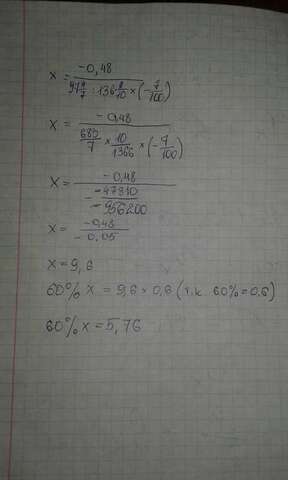 x = -0,48 / (97 4/7 : 136 6/10 × (-7/100))
x = -0,48 / (683/7 × 10/1366 × (-7/100))
x = -0,48 / (- -47810/-956200)
x = -0,48 / -0,05
x = 9,6
60% x = 9,6 × 0,6 (т.к. 60% = 0.6)
60% x = 5,76